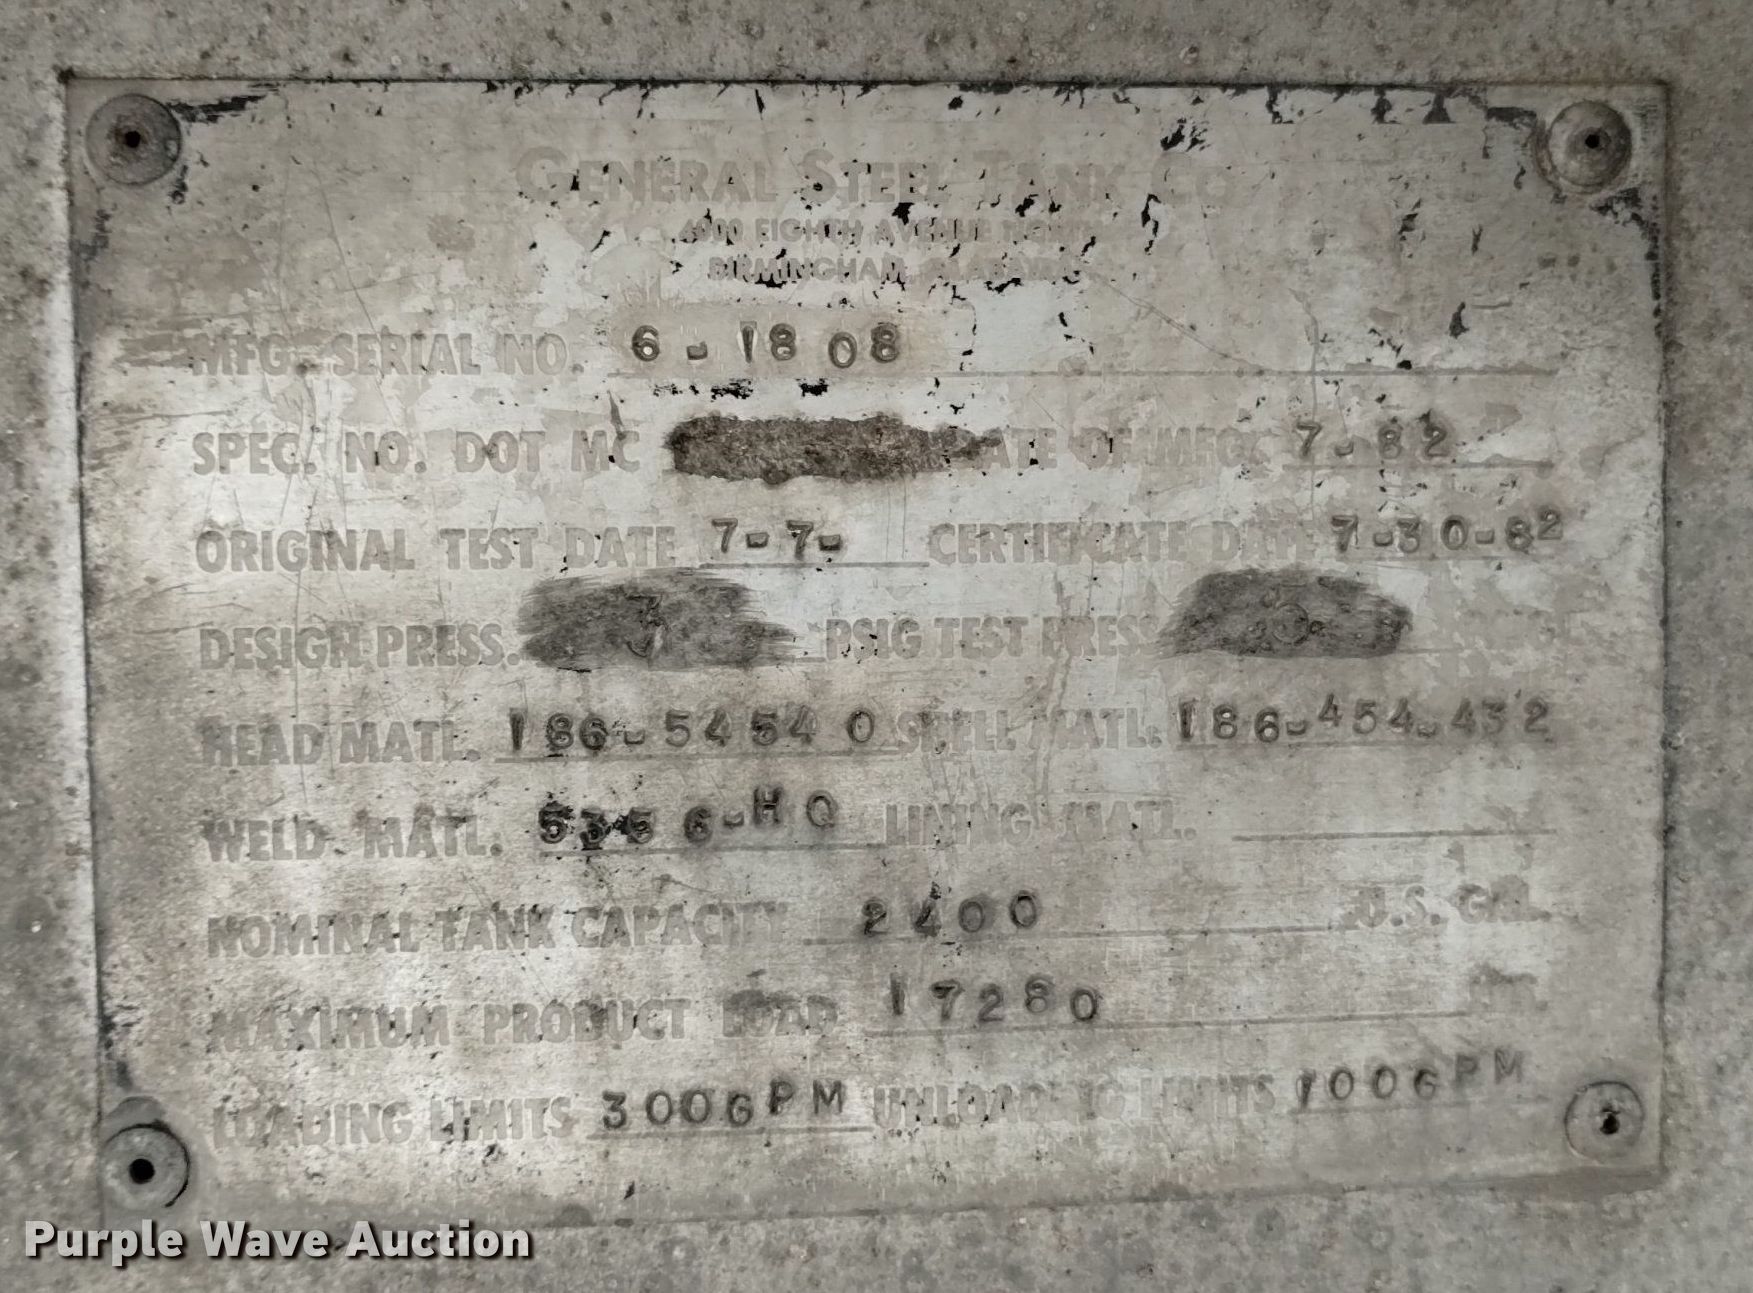 GENERAL STEEL TANK CO.
4000 EIGHTH AVENUE NORTH
BIRMINGHAM, ALABAMA
MFG. SERIAL NO. 6-1808
SPEC. NO. DOT MC DATE OF MFG. 7-82
ORIGINAL TEST DATE 7-7- CERTIFICATE DATE 7-30-82
DESIGN PRESS. PSIG TEST PRESS
HEAD MATL. 186-54540 SHELL MATL. 186-454-432
WELD. MATL. 5356-HQ LINING MATL.
NOMINAL TANK CAPACITY 2400 U.S. GAL.
MAXIMUM PRODUCT LOAD 17280
LOADING LIMITS 300GPM UNLOADING LIMITS 100GPM
Purple Wave Auction